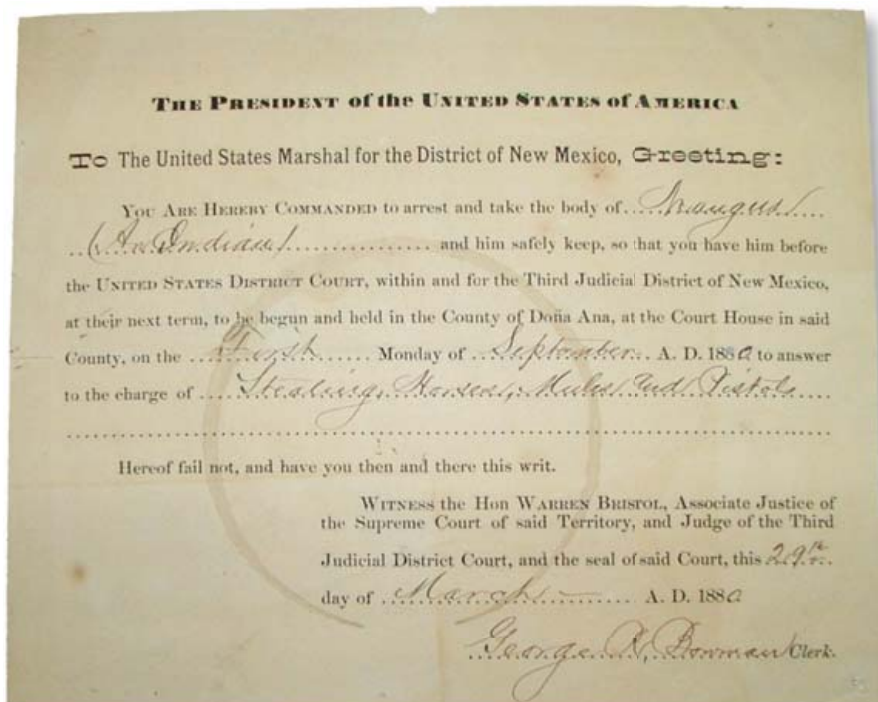 THE PRESIDENT of the UNITED STATES of AMERICA
To The United States Marshal for the District of New Mexico, Greeting:
YOU ARE HEREBY COMMANDED to arrest and take the body of Mangus
(An Indian) and him safely keep, so that you have him before
the UNITED STATES DISTRICT COURT, within and for the Third Judicial District of New Mexico,
at their next term, to be begun and held in the County of Doña Ana, at the Court House in said
County, on the First Monday of September A. D. 1880 to answer
to the charge of Stealing, Horses, Mules And Pistols
Hereof fail not, and have you then and there this writ.
WITNESS the Hon WARREN BRISTOL, Associate Justice of
the Supreme Court of said Territory, and Judge of the Third
Judicial District Court, and the seal of said Court, this 29th
day of March A. D. 1880
George R. Bowman Clerk.